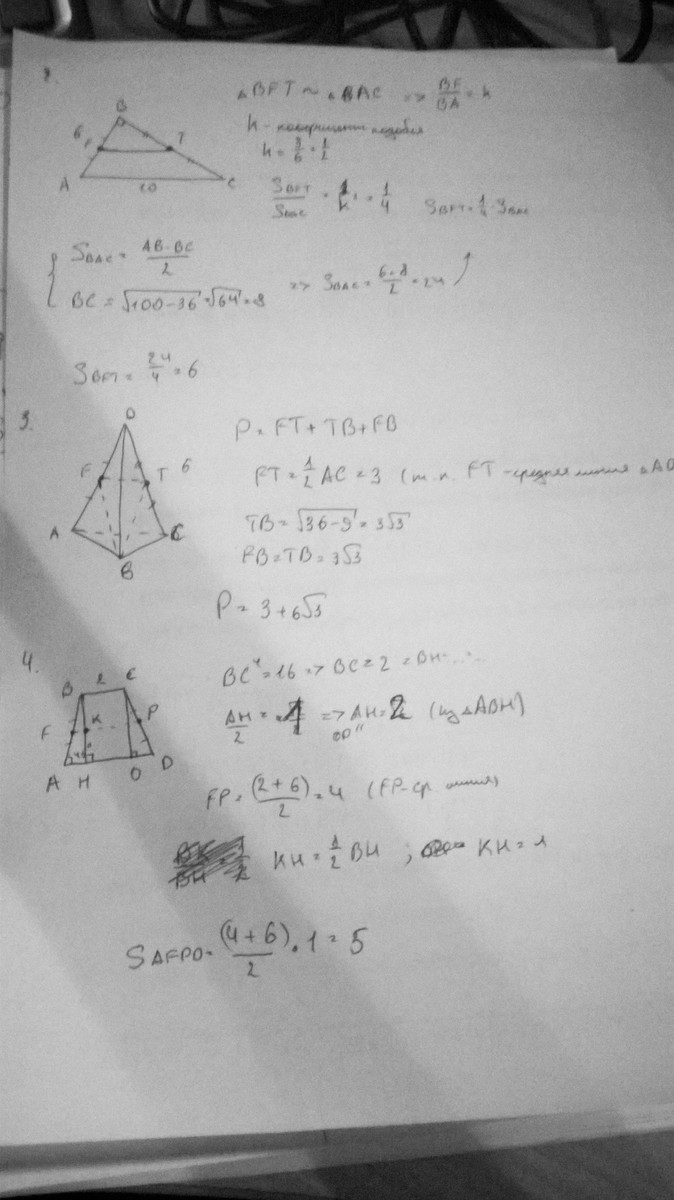 △BFT ~ △BAC => BF/BA = k
B
6 F T
A 10 C
k - коэффициент подобия
k = 3/6 = 1/2
S BFT / S BAC = k² = 1/4 S BFT = 1/4 · S BAC
{ S BAC = AB·BC/2
BC = √100-36 = √64 = 8 => S BAC = 6·8/2 = 24
S BFT = 24/4 = 6
3.
D
F T 6
A C
B
P = FT + TB + FB
FT = 1/2 AC = 3 (т.к. FT - средняя линия △AD
TB = √36-9 = 3√3
FB = TB = 3√3
P = 3 + 6√3
4.
B 2 C
F K P
A H O D
BC = 2 = BH
AH/2 = 1 => AH = 2 (из △ABH)
OD"
FP = (2+6)/2 = 4 (FP - ср. линия)
KH = 1/2 BH ; KH = 1
S AFPD = (4+6)/2 · 1 = 5